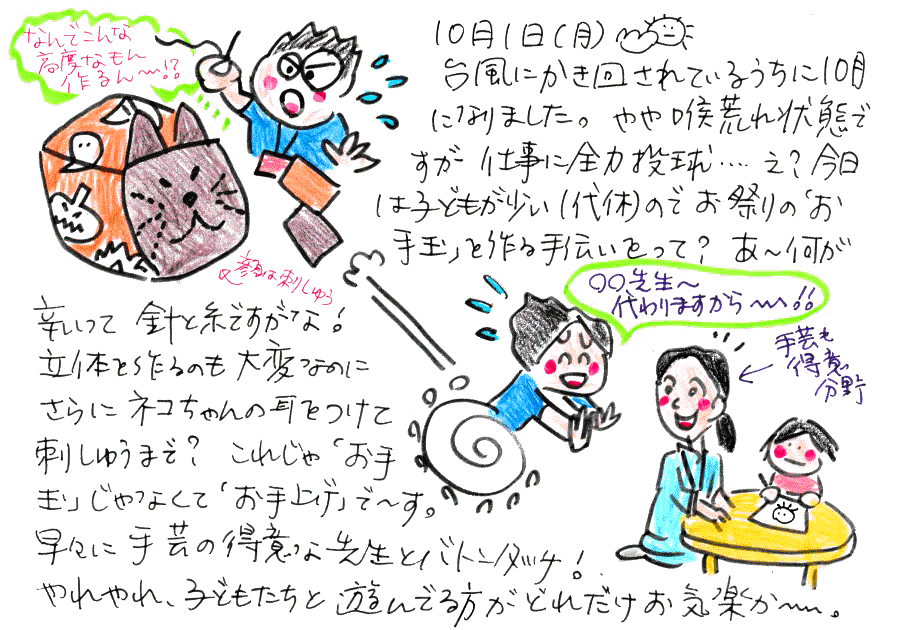 なんでこんな
高度なもん
作るん〜!?
顔は刺しゅう
10月1日(月)
台風にかき回されているうちに10月
になりました。やや喉荒れ状態で
すが仕事に全力投球‥‥え?今日
は子どもが少い(代休)のでお祭りの「お
手玉」を作る手伝いをって?あ〜何が
辛いって針と糸ですがな!
立体を作るのも大変なのに
さらにネコちゃんの耳をつけて
刺しゅうまで?これじゃ「お手
玉」じゃなくて「お手上げ」で〜す。
早々に手芸の得意な先生とバトンタッチ!
やれやれ、子どもたちと遊んでる方がどれだけお気楽か〜。
〇〇先生〜
代わりますから〜!!
手芸も
得意
分野